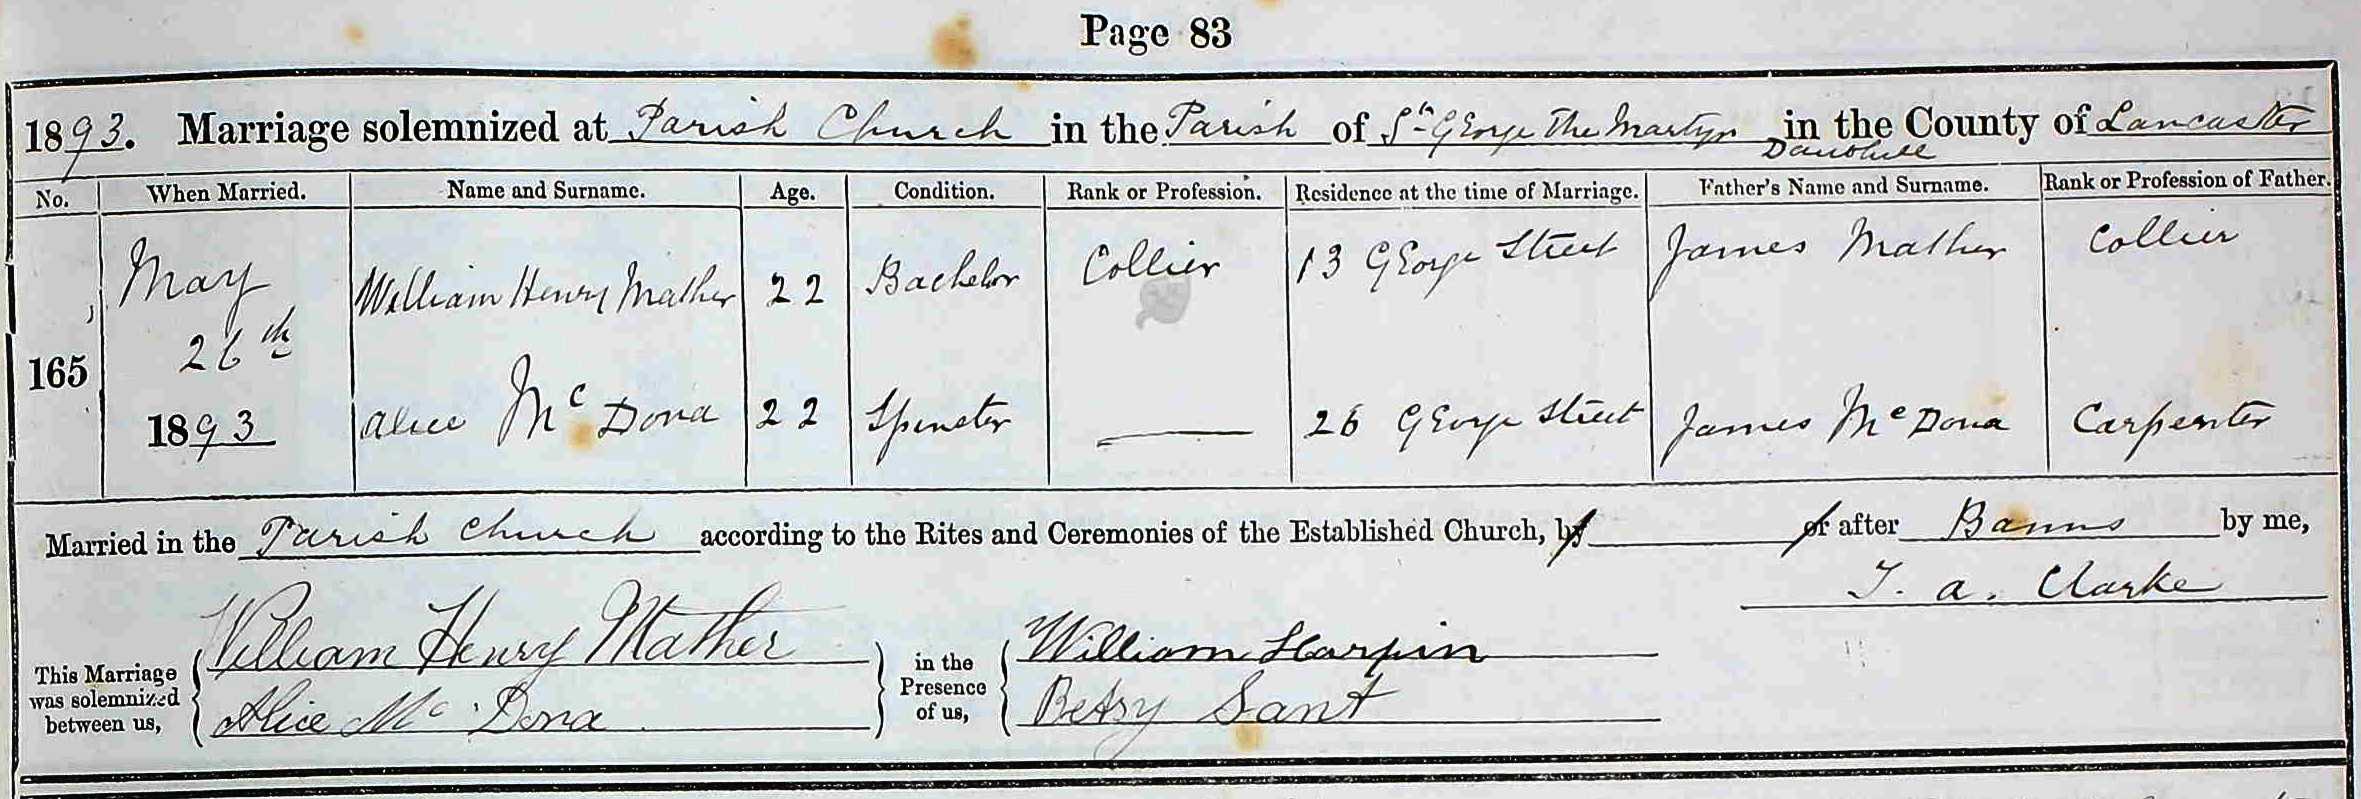 Page 83
1893. Marriage solemnized at Parish Church in the Parish of St George the Martyr Daubhill in the County of Lancaster
No. When Married. Name and Surname. Age. Condition. Rank or Profession. Residence at the time of Marriage. Father's Name and Surname. Rank or Profession of Father.
May William Henry Mather 22 Bachelor Collier 13 George Street James Mather Collier
26th
165
1893 Alice McDona 22 Spinster 26 George Street James McDona Carpenter
Married in the Parish Church according to the Rites and Ceremonies of the Established Church, by or after Banns by me,
T. A. Clarke
This Marriage was solemnized between us, William Henry Mather in the Presence of us, William Harpin
Alice Mc Dona Betsy Sant